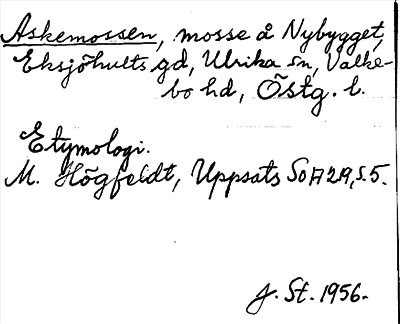 Askemossen, mosse å Nybygget,
Eksjöhults gd, Ulrika sn, Valke-
bo hd, Östg. l.
Etymologi.
M. Högfeldt, Uppsats SOA 219, s. 5.
J. St. 1956.